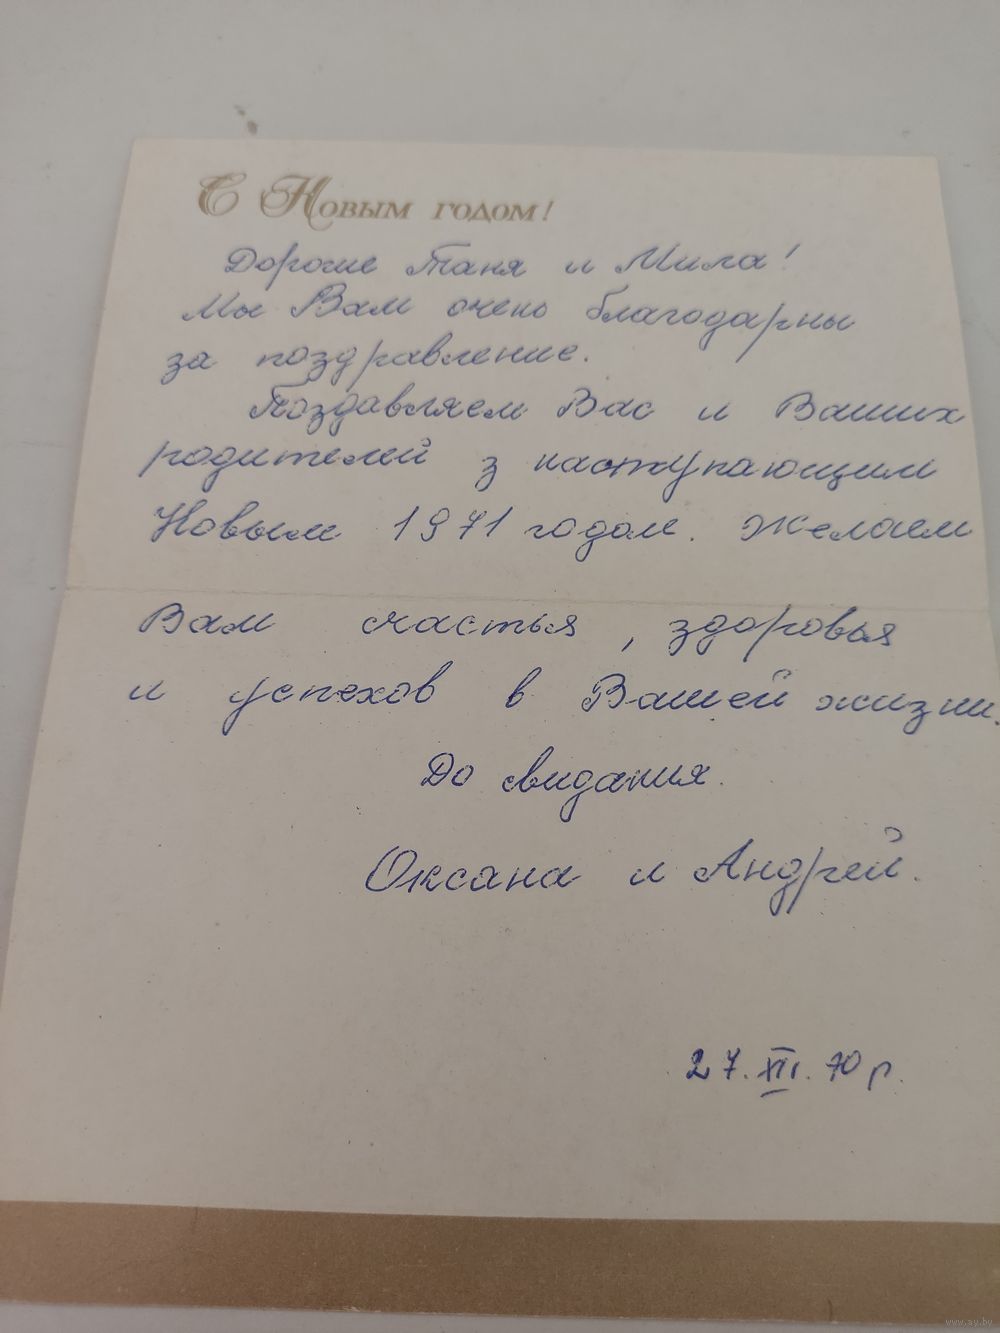 С Новым годом!
Дорогие Таня и Мила!
Мы Вам очень благодарны
за поздравление.
Поздавляем Вас и Ваших
родителей з наступающим
Новым 1971 годом. Желаем
Вам счастья, здоровья
и успехов в Вашей жизни.
До свидания.
Оксана и Андрей.
27.XII.70 р.
www.ay.by